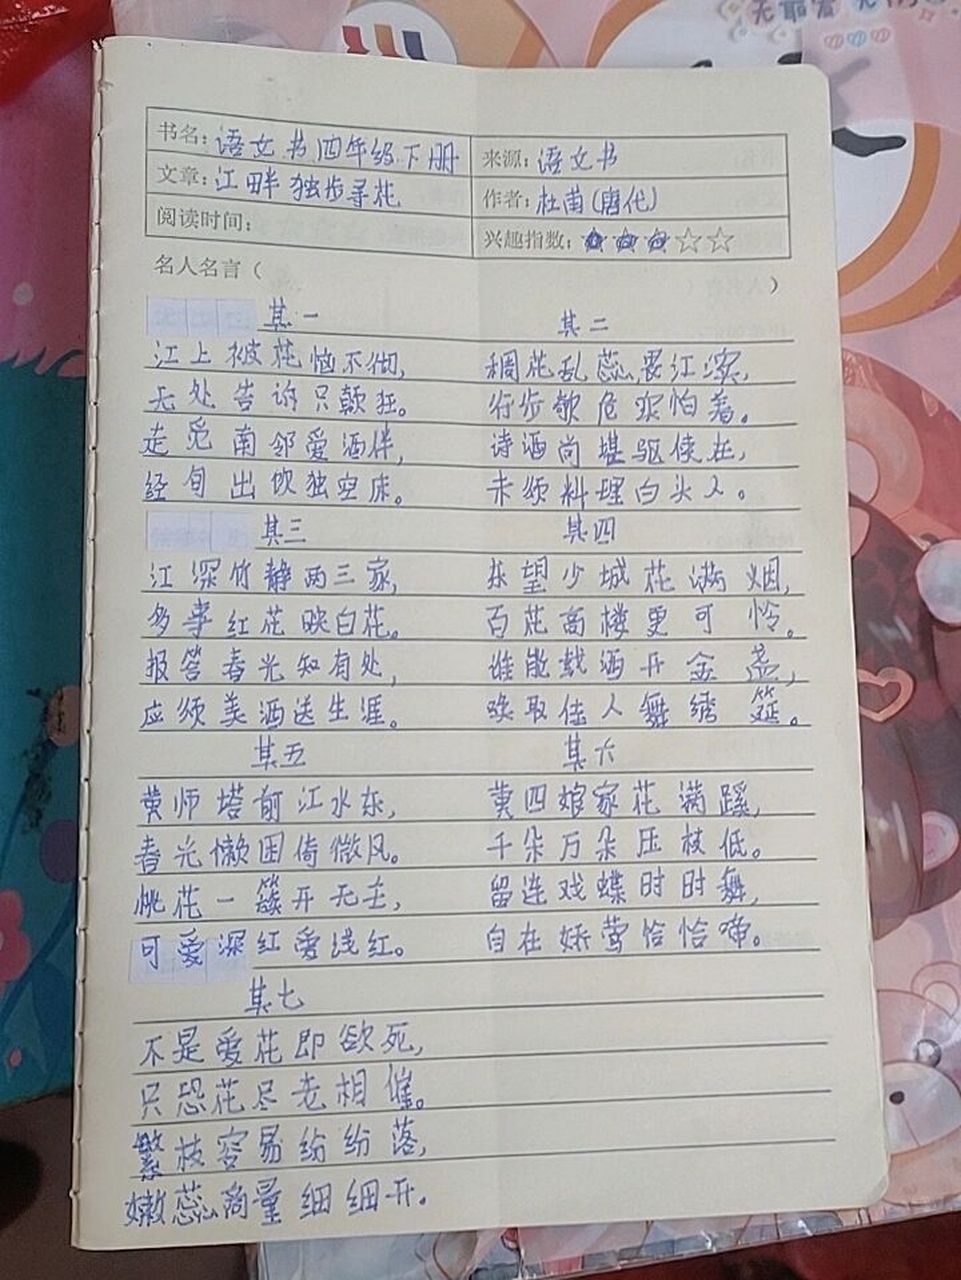 书名：语文书四年级下册
来源：语文书
文章：江畔独步寻花
作者：杜甫（唐代）
阅读时间：
兴趣指数：★★★☆☆
名人名言（ ）
其一
江上被花恼不彻，
无处告诉只颠狂。
走觅南邻爱酒伴，
经旬出饮独空床。
其二
稠花乱蕊畏江滨，
行步欹危实怕春。
诗酒尚堪驱使在，
未须料理白头人。
其三
江深竹静两三家，
多事红花映白花。
报答春光知有处，
应须美酒送生涯。
其四
东望少城花满烟，
百花高楼更可怜。
谁能载酒开金盏，
唤取佳人舞绣筵。
其五
黄师塔前江水东，
春光懒困倚微风。
桃花一簇开无主，
可爱深红爱浅红。
其六
黄四娘家花满蹊，
千朵万朵压枝低。
留连戏蝶时时舞，
自在娇莺恰恰啼。
其七
不是爱花即欲死，
只恐花尽老相催。
繁枝容易纷纷落，
嫩蕊商量细细开。